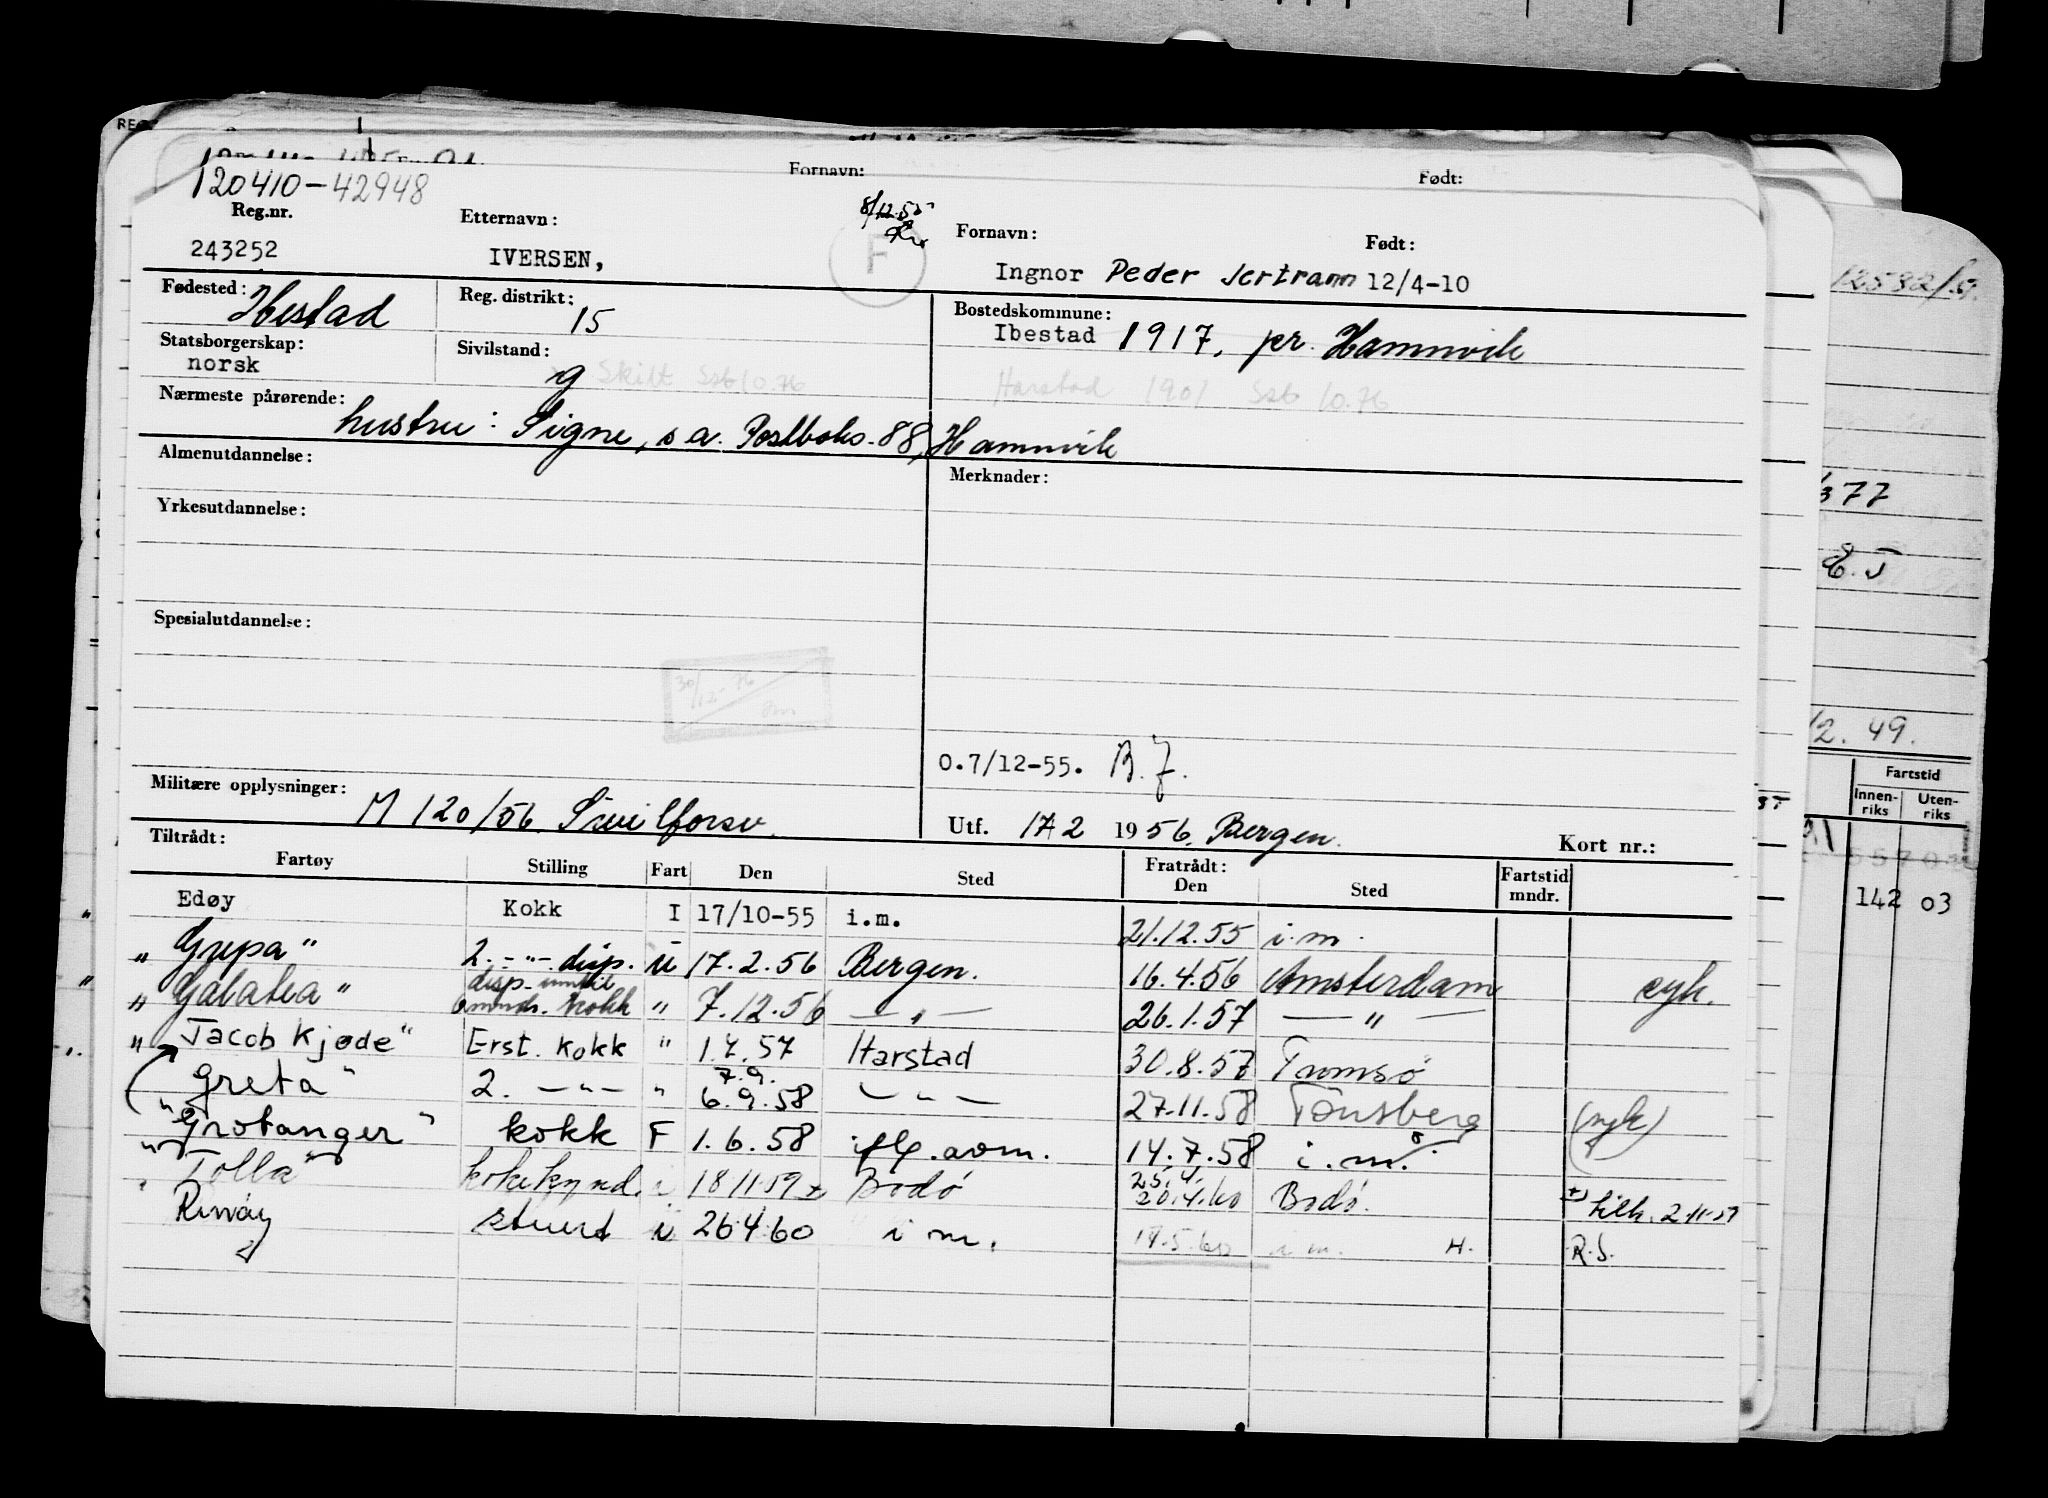 Fornavn: Født:
120410-42948
Reg.nr. Etternavn: 8/12.55 Fornavn: Født:
243252 IVERSEN, F Ingnor Peder Jertrann 12/4-10
Fødested: Ibestad Reg. distrikt: 15 Bostedskommune: Ibestad 1917, pr. Hamnvik
Statsborgerskap: norsk Sivilstand: g Skilt Sab 10.76 Harstad 1901 Sab 10.76
Nærmeste pårørende: hustru: Signe, s a. Postboks 88, Hamnvik
Almenutdannelse: Merknader:
Yrkesutdannelse:
Spesialutdannelse:
30/12-76
0.7/12-55. B.J.
Militære opplysninger: M 120/56 Sivilforsv. Utf. 17 2 1956, Bergen. Kort nr.:
Tiltrådt: Fratrådt:
Fartøy Stilling Fart Den Sted Den Sted Fartstid mndr.
Edøy Kokk I 17/10-55 i.m. 21.12.55 i.m.
"Grepa" 2. -"- disp. u 17.2.56 Bergen. 16.4.56 Amsterdam syk.
"Galatea" disp. inntil 6 mnds. kokk " 7.12.56 -"- 26.1.57 -"-
"Jacob Kjøde" Erst. kokk " 1.7.57 Harstad 30.8.57 Tromsø
"Greta" 2. -"- " 7.9. 6.9.58 -"- 27.11.58 Tønsberg (syk)
"Grotanger" kokk F 1.6.58 iflg. avm. 14.7.58 i.m.
"Tolla" kokekynd. i 18 11 59 + Bodø 25.4. 20.4.60 Bodø. +) tilk. 2-11-59
Rinøy stuert i 26.4.60 i m. 14.5.60 i m. H. R.S.
12532/
377
E.T
12. 49.
Fartstid
Innenriks Utenriks
142 03